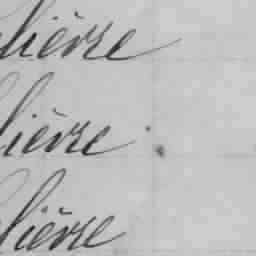 lièvre
lièvre
lièvre